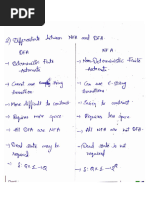 2) Differentiate between NFA and DFA
DFA
NFA
→ Deterministic Finite Automata
→ Non-Deterministic Finite Automata
→ Cannot use empty string transition
→ Can use E-String transition
→ More difficult to construct
→ Easy to construct
→ Requires more space
→ Requires less space
→ All DFA are NFA
→ All NFA are not DFA
→ Dead state may be required
→ Dead state is not required